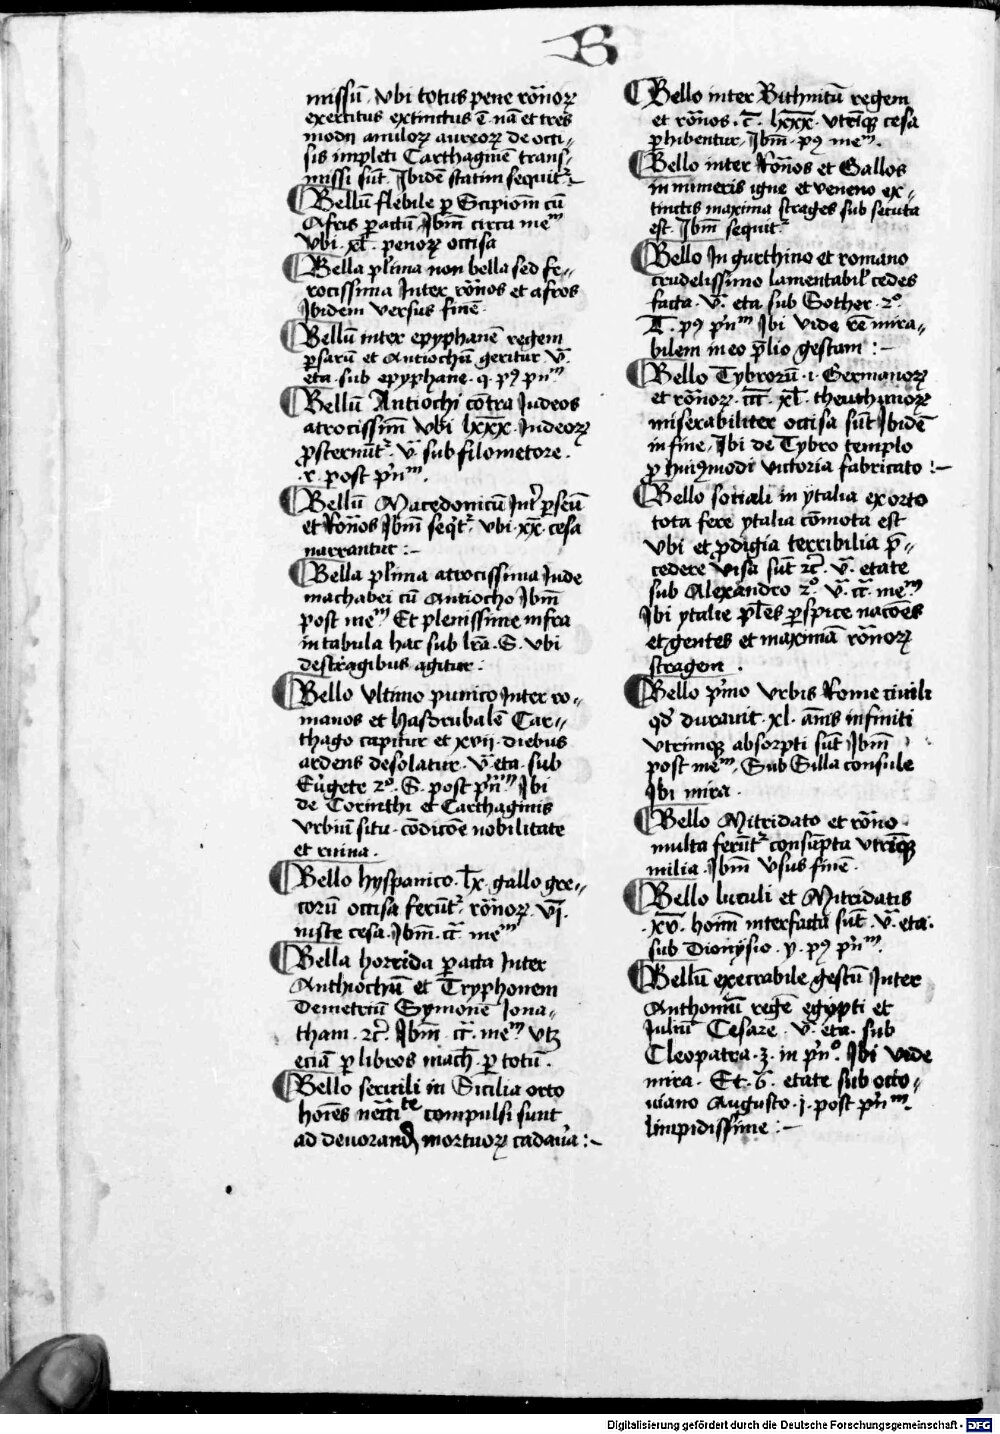 B
missū ubi totus pene rōnoꝝ
exercitus extinctus ē. nā et tres
modii anulorꝝ aureorꝝ de occi-
sis impleti Carthaginē trans-
missi sūt. Ibidē statim sequit̄.
Bellū flebile ꝑ Scipionē cū
Afris ꝑactū Ibm̄ circa meᵐ
Ubi .xl. penorꝝ occisa
Bella pl̄ima non bella sed fe-
rocissima Inter rōnos et afros
Ibidem versus finē.
Bellū inter epyphanē regem
ꝑsarū et Antiochū geritur v̄.
eta. sub epyphane. q. pꝰ pnᵐ
Bellū Antiochi cōtra Iudeos
atrocissimū ubi lxxx. Iudeorꝝ
ꝓsternūt̄. v̄ sub filometore.
r. post pn̄ᵐ.
Bellū Macedonicū Int̄ ꝑseū
et Rōnos Ibm̄ seqt̄. ubi .xx. cesa
narrantur :-
Bella pl̄ima atrocissima Iude
machabei cū Antiocho Ibm̄
post meᵐ Et plenissime infra
in tabula hac sub lrā. S. ubi
de stragibus agitur :
Bello ultimo punico Inter ro-
manos et Hasdrubalē Car-
thago capitur et xvii. diebus
ardens desolatur. v̄. eta. sub
Eūgete 2°. S. post pn̄ᵐ Ibi
de Corinthi et Carthaginis
urbiū situ. cōdicōe nobilitate
et ruina.
Bello hyspanico. lx. gallo gre-
corū occisa ferūt̄. rōnorꝝ. vi.
cesa. Ibm̄. meᵐ
Bella horrida ꝑacta Inter
Anthiochū et Tryphonem
Demetriū Symonē Iona-
tham. ꝛc̄. Ibm̄ meᵐ utꝫ
eciā ꝑ libros mach̄. ꝑ totū.
Bello servili in Sicilia orto
hoīes compulsi sunt
ad devorandꝫ mortuorꝝ cadavā :-
Bello inter Bithinū regem
et rōnos. c̄. lxxx. utriqꝫ cesa
ꝑhibentur. Ibm̄. pꝰ meᵐ.
Bello inter Rōnos et Gallos
innumeris igne et veneno ex-
tinctis maxima strages sub secuta
est. Ibm̄ sequit̄
Bello Iugurthino et romano
crudelissimo lamentabil̄ cedes
facta. v̄. eta sub Sother. 2°.
pꝰ pn̄ᵐ Ibi vide rē mira-
bilem in eo p̄lio gestam :-
Bello Tybrorū .i. Germanorꝝ
et rōnorꝝ. ccc. xl. theuthunorꝝ
miserabiliter occisa sūt Ibidē
in fine. Ibi de Tybro templo
ꝓ huiꝰmodi victoria fabricato :-
Bello sociali in ytalia exorto
tota fere ytalia cōmota est
ubi et ꝓdigia terribilia p̄-
cedere visa sūt ꝛc̄. v̄. etate
sub Alexandro 2°. v̄. meᵐ
Ibi ytalie ꝑspice nacōes
et gentes et maximā rōnorꝝ
stragem.
Bello p̄mo urbis Rome civili
qd̄ duravit .xl. annis infiniti
utrimqꝫ absorpti sūt Ibm̄
post meᵐ. Sub Silla consule
Ibi mira.
Bello Mitridato et rōno
multa ferūt̄ consūpta utrīqꝫ
milia. Ibm̄ vsus finē.
Bello luculi et Mitridatis
.xv. hoīm interfacta sūt. v̄. eta.
sub Dionysio. y. pꝰ pn̄ᵐ.
Bellū execrabile gestū Inter
Anthoniū regē egypti et
Iuliū Cesare. v̄. eta. sub
Cleopatra. ꝫ. in pn̄°. Ibi vide
mira. Et. 6. etate sub octo-
viano Augusto. j. post pn̄ᵐ.
limpidissime :-
Digitalisierung gefördert durch die Deutsche Forschungsgemeinschaft - DFG